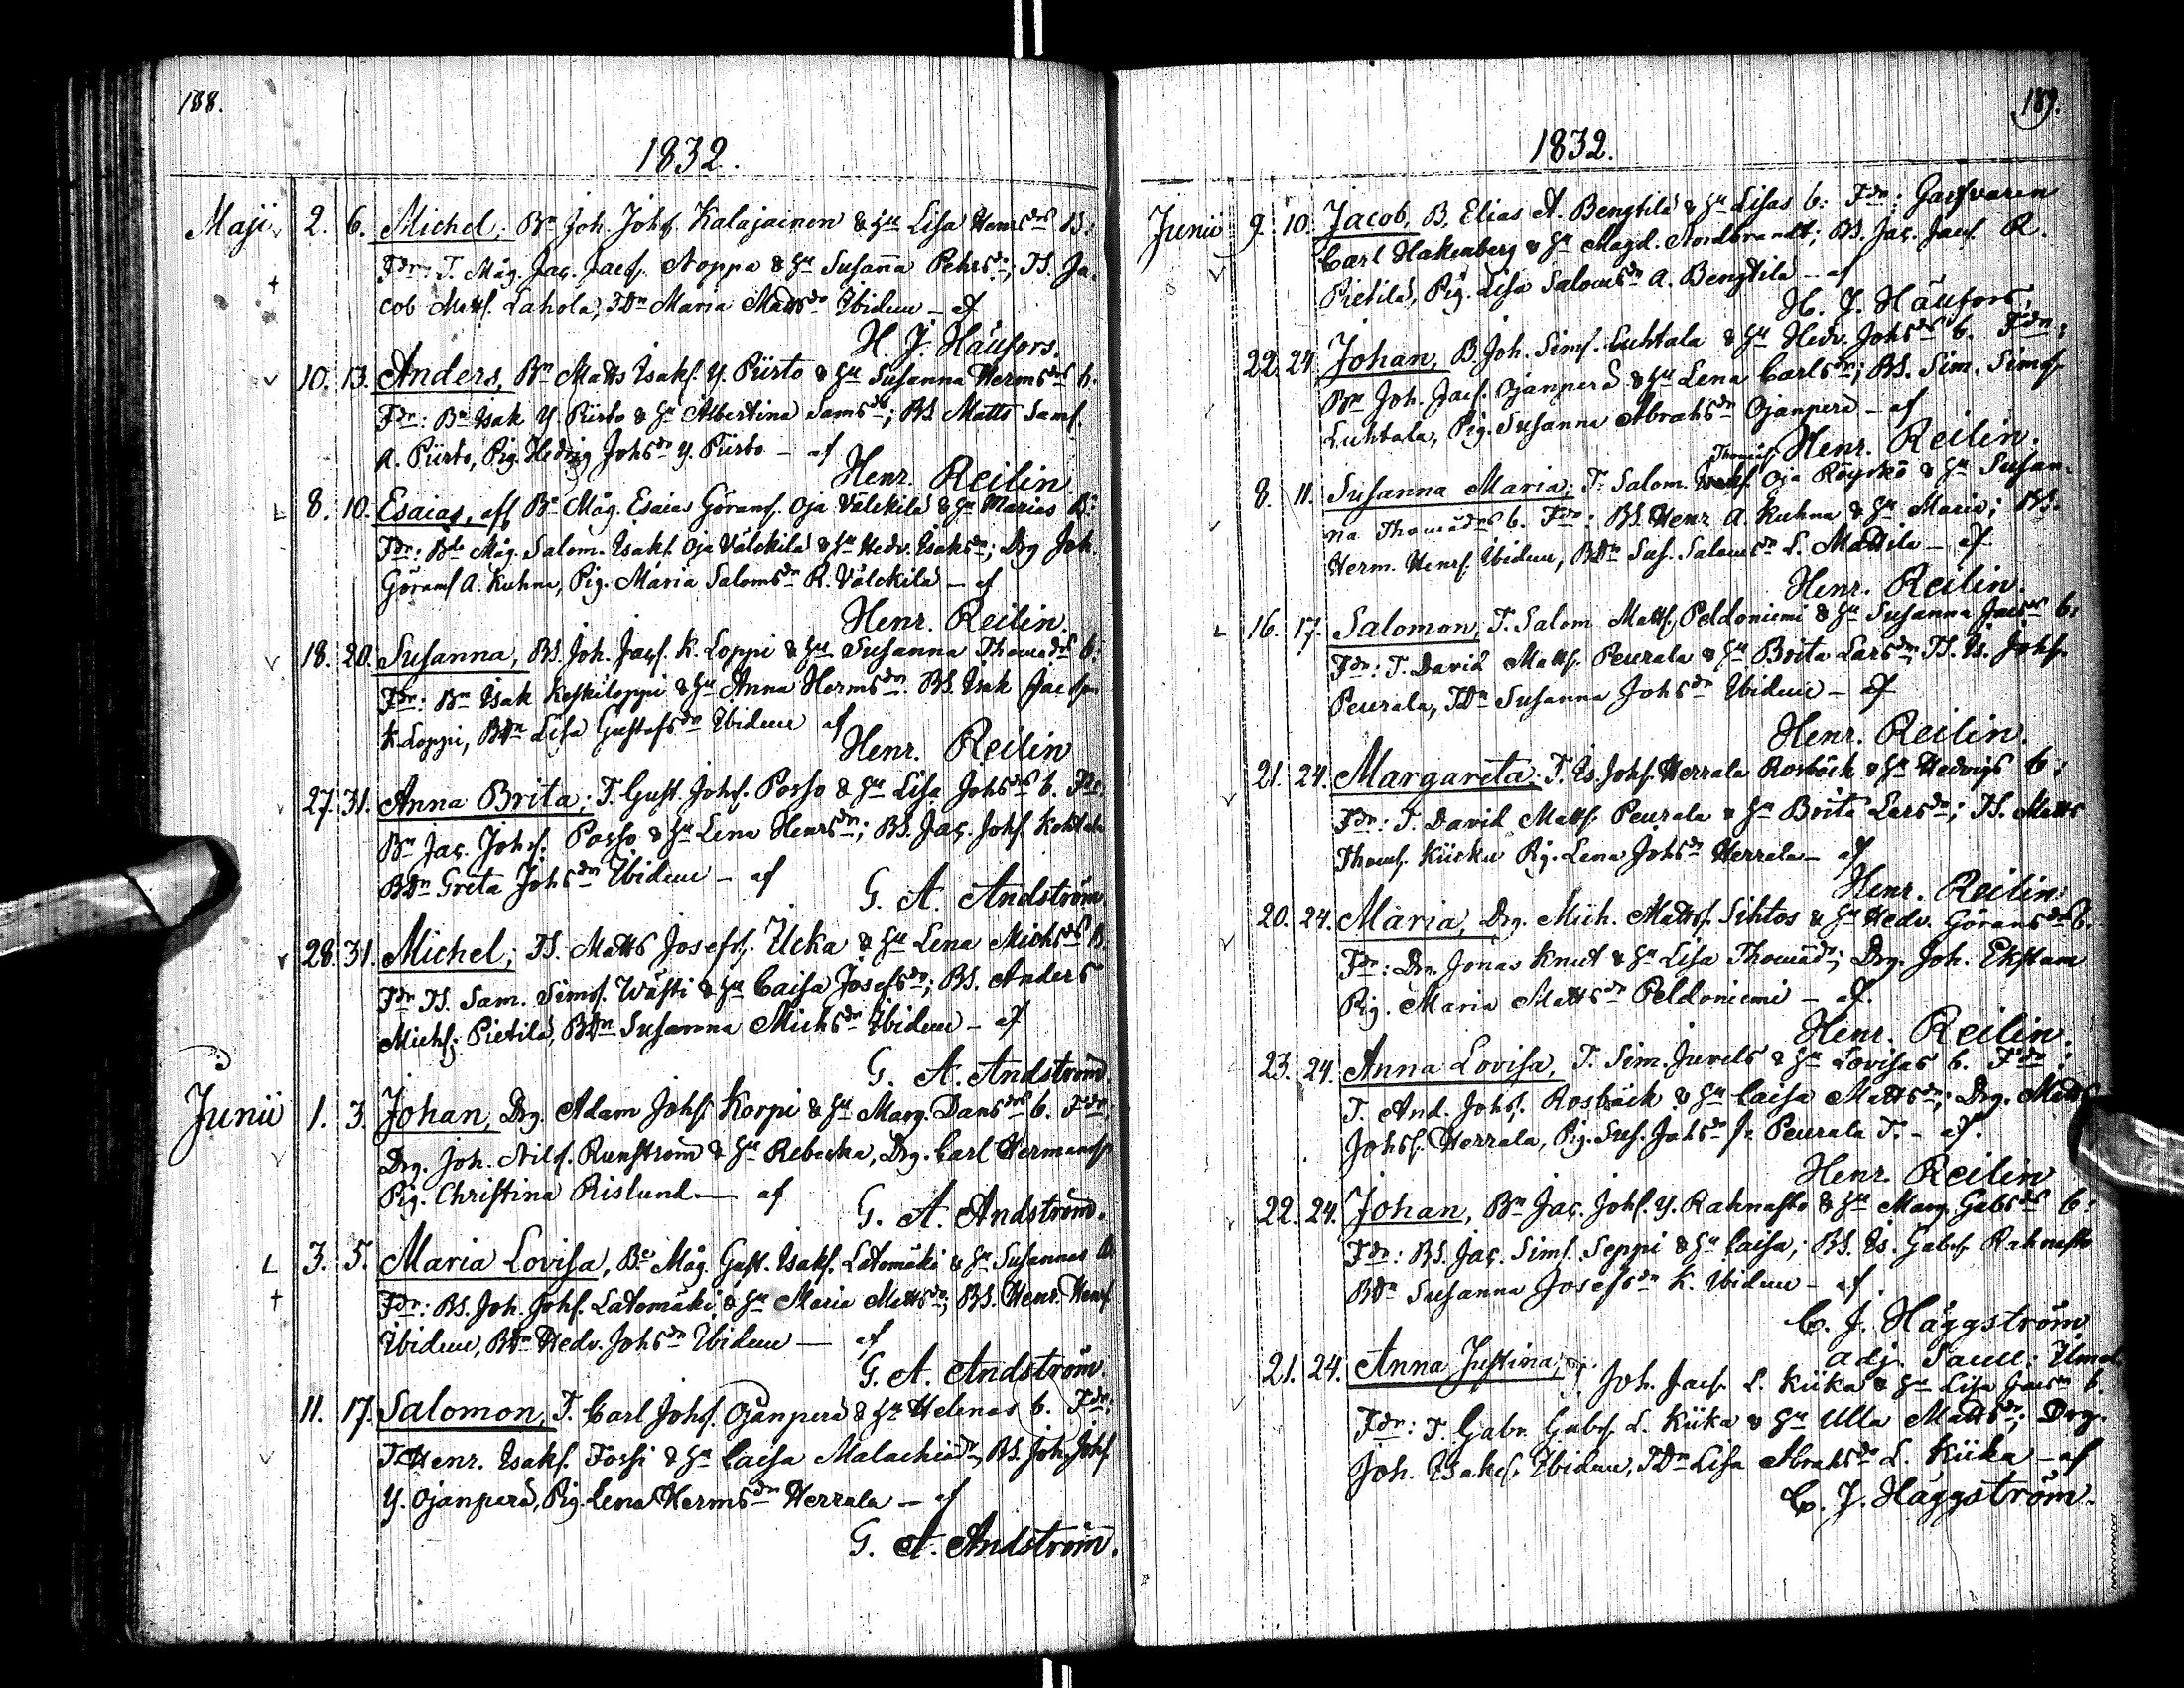 188.
1832.
Maji 2. 6. Michel; Bn Joh. Johs. Kalajainen & Hu Lisa Henrsdrs B:
Fdr: T. Måg. Jac. Jacs. Noppa & Hu Susanna Pehrsdr; TS. Ja-
cob Matts. Lahola, TDn Maria Mattsdr Ibidem – af
H. J. Häufors.
10. 13. Anders, Bn Matts Isaks. Y. Piirto & Hu Susanna Hermsdrs b.
Fdr: Bn Isak Y. Piirto & Hu Albertina Samsdr; BS. Matts Sams.
A. Piirto, Pig. Hedvig Johsdr Y. Piirto – af
Henr. Reilin.
8. 10. Esaias, afl. Bn Måg. Esaias Görans. Oja Välckilä & Hu Marias B:
Fdr: Bde Måg. Salom. Isaks. Oja Välckilä & Hu Hedv. Isaksdr; Drg Joh.
Görans. A. Kuhna, Pig. Maria Salomsdr R. Välckilä – af
Henr. Reilin.
18. 20. Susanna, BS. Joh. Jacs. K. Loppi & Hu Susanna Thomädrs b:
Fdr: Bn Isak Keskiloppi & Hu Anna Hermsdr. BS. Isak Jacs
K Loppi, BDn Lisa Gustafsdr Ibidem af
Henr. Reilin
27. 31. Anna Brita; T. Gust. Johs. Porso & Hu Lisa Johsdrs b. Fdr.
Bn Jac. Johs. Passo & Hu Lena Henrsdr; BS. Jac. Johs. Kohtala
BDn Greta Johsdr Ibidem – af
G. A. Andström.
28. 31. Michel; TS. Matts Josefs. Ucka & Hu Lena Michsdrs B.
Fdr TS. Sam. Sims. Wästi & Hu Caisa Josefsdr; BS. Anders
Michs. Pietilä, BDn Susanna Michsdr Ibidem – af
G. A. Andström.
Junii 1. 3. Johan, Drg. Adam Johs. Korpi & Hu Marg. Dansdrs b. Fdr.
Drg. Joh. Nils. Runström & Hu Rebecka, Drg. Carl Hermans.
Pig. Christina Rislund — af
G. A. Andström.
3. 5. Maria Lovisa, Be Måg. Gust. Isaks. Latomäki & Hu Susannas B.
Fdr: BS. Joh. Johs. Latomäki & Hu Maria Mattsdr; BS. Henr. Henrs
Ibidem, BDn Hedv. Johsdr Ibidem — af
G. A. Andström.
11. 17. Salomon, T. Carl Johs. Ojanperä & Hu Helenas b. Fdr:
T. Henr. Isaks. Fossi & Hu Caisa Malachiädr, BS. Joh. Johs
Y. Ojanperä, Pig. Lena Hermsdr Herrala – af
G. A. Andström.
189.
1832.
Junii 9 10. Jacob, B. Elias A. Bengtilä & Hu Lisas b: Fdr: Garfvaren
Carl Hakenberg & Hu Magd. Nordbrandt; BS. Jac. Jacs. R.
Pietilä, Pig. Lisa Salomsdr A. Bengtilä – af
H. J. Häufors.
22. 24. Johan, B. Joh. Sims. Luhtala & Hu Hedv. Johsdrs b. Fdr:
Bn Joh. Jacs. Ojanperä & Hu Lena Carlsdr; BS. Sim. Sims.
Luhtala, Pig. Susanna Abrahsdr Ojanperä – af
Henr. Reilin.
Thomäs.
8. 11. Susanna Maria; T. Salom. Isaks. Oja Röyskö & Hu Susan-
na Thomädrs b. Fdr: BS. Henr. A. Kuhna & Hu Maria; BS.
Herm. Henrs. Ibidem, BDn Sus. Salomsdr L. Mattila – af
Henr. Reilin.
16. 17. Salomon, T. Salom Matts. Peldoniemi & Hu Susanna Jacsdrs b:
Fdr: T. David Matts. Peurala & Hu Brita Larsdr; TS. Is. Johs.
Peurala, TDn Susanna Johsdr Ibidem – af
Henr. Reilin.
21. 24. Margareta; T. Is. Johs. Herrala Rosbäck & Hu Hedvigs b:
Fdr: T. David Matts. Peurala & Hu Brita Larsdr; TS. Matts
Thoms. Kiicku Pig. Lena Johsdr Herrala – af
Henr. Reilin.
20. 24. Maria, Drg. Mich. Matts. Sihtos & Hu Hedv. Göransdrs b.
Fdr: Drg. Jonas Knut & Hu Lisa Thomädr; Drg. Joh. Ekstam
Pig. Maria Mattsdr Peldoniemi – af.
Henr. Reilin.
23. 24. Anna Lovisa, T. Sim. Juvels & Hu Lovisas b. Fdr:
T. And. Johs. Rosbäck & Hu Caisa Mattsdr; Drg. Matts
Johs. Herrala, Pig. Sus. Johsdr fr Peurala T. – af.
Henr. Reilin
22. 24. Johan, Bn Jac. Johs. Y. Rahnasto & Hu Marg. Gabsdrs b:
Fdr: BS. Jac. Sims. Seppi & Hu Caisa; BS. Is. Gabs. Rahnasto
BDn Susanna Josefsdr K. Ibidem – af.
C. J. Häggström
adj. Sacell. Ilmol.
21. 24. Anna Justina, T. Joh. Jacs. L. Kiika & Hu Lisa Jacsdrs b.
Fdr: T. Gabr. Gabs. L. Kiika & Hu Ulla Mattsdr; Drg.
Joh. Isaks. Ibidem, TDn Lisa Abrahsdr L. Kiika – af
C. J. Häggström.